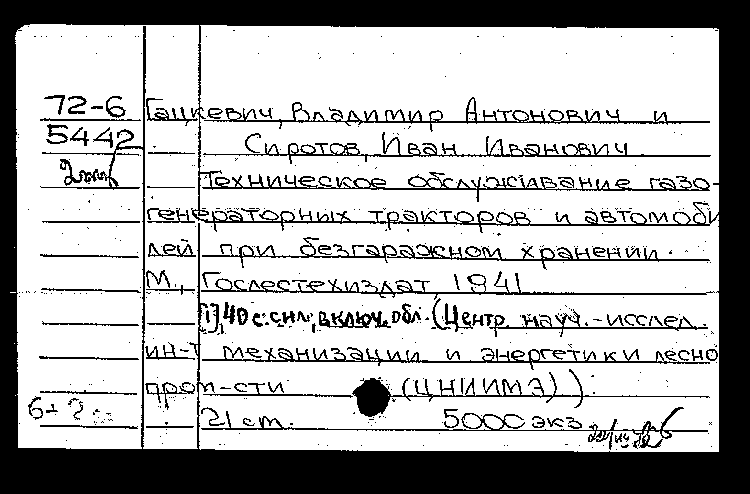 72-6 Гацкевич, Владимир Антонович и
5442 Сиротов, Иван Иванович
Техническое обслуживание газо-
генераторных тракторов и автомоби
лей при безгаражном хранении.
М., Гослестехиздат, 1941
[1], 40 с. с илл., включ. обл. (Центр. науч.-исслед.
ин-т механизации и энергетики лесно
пром-сти (ЦНИИМЭ)).
21 ст. 5000 экз